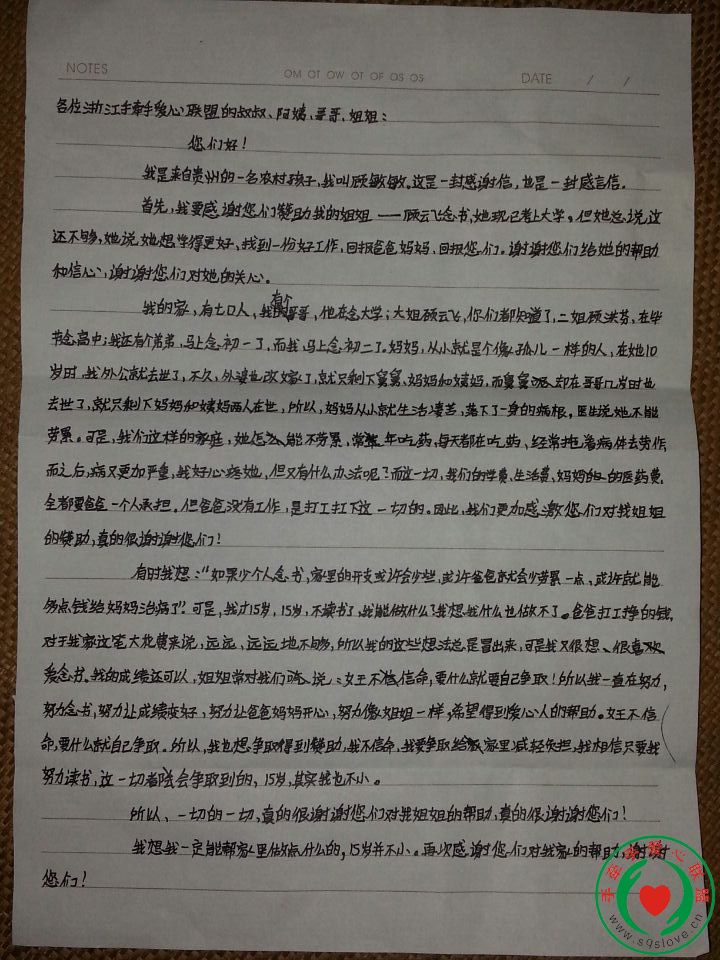 NOTES
OM OT OW OT OF OS OS
DATE / /
各位浙江手牵手爱心联盟的叔叔、阿姨、哥哥、姐姐：
您们好！
我是来自贵州的一名农村孩子，我叫顾敏敏。这是一封感谢信，也是一封感言信。
首先，我要感谢您们赞助我的姐姐——顾云飞念书，她现已考上大学。但她总说，这
还不够，她说她想学得更好，找到一份好工作，回报爸爸妈妈，回报您们。谢谢您们给她的帮助
和信心，谢谢您们对她的关心。
我的家，有七口人，我有个哥哥，他在念大学；大姐顾云飞，你们都知道了，二姐顾洪芬，在毕
节念高中；我还有个弟弟，马上念初一了，而我马上念初二了。妈妈，从小就是个像孤儿一样的人，在她10
岁时，我外公就去世了，不久，外婆也改嫁了，就只剩下舅舅、妈妈和姨妈，而舅舅却在哥哥几岁时也
去世了，就只剩下妈妈和姨妈两人在世，所以，妈妈从小就生活凄苦，落下了一身的病根，医生说她不能
劳累。可是，我们这样的家庭，她怎么能不劳累，常年吃药，每天都在吃药，经常拖着病体去劳作，
而之后，病又更加严重，我好心疼她，但又有什么办法呢？而这一切，我们的学费、生活费、妈妈的医药费，
全都要爸爸一个人承担。但爸爸没有工作，是打工扛下这一切的。因此，我们更加感激您们对我姐姐
的赞助，真的很谢谢您们！
有时我想：“如果少个人念书，家里的开支或许会少些，或许爸爸就会少劳累一点，或许就能
多点钱给妈妈治病了”。可是，我才15岁，15岁，不读书了，我能做什么？我想我什么也做不了。爸爸打工挣的钱，
对于我家这笔大花费来说，远远，远远地不够，所以我的这些想法总是冒出来，可是我又很想、很喜欢
爱念书。我的成绩还可以，姐姐常对我们说：女王不信命，要什么就要自己争取！所以我一直在努力，
努力念书，努力让成绩变好，努力让爸爸妈妈开心，努力像姐姐一样，希望得到爱心人的帮助。女王不信
命，要什么就自己争取。所以，我也想争取得到赞助，我不信命，我要争取给家里减轻负担，我相信只要我
努力读书，这一切都会争取到的，15岁，其实我也不小。
所以、一切的一切，真的很谢谢您们对我姐姐的帮助，真的很谢谢您们！
我想我一定能帮家里做点什么的，15岁并不小。再次感谢您们对我家的帮助，谢谢
您们！
手牵手爱心联盟
www.sqslove.cn